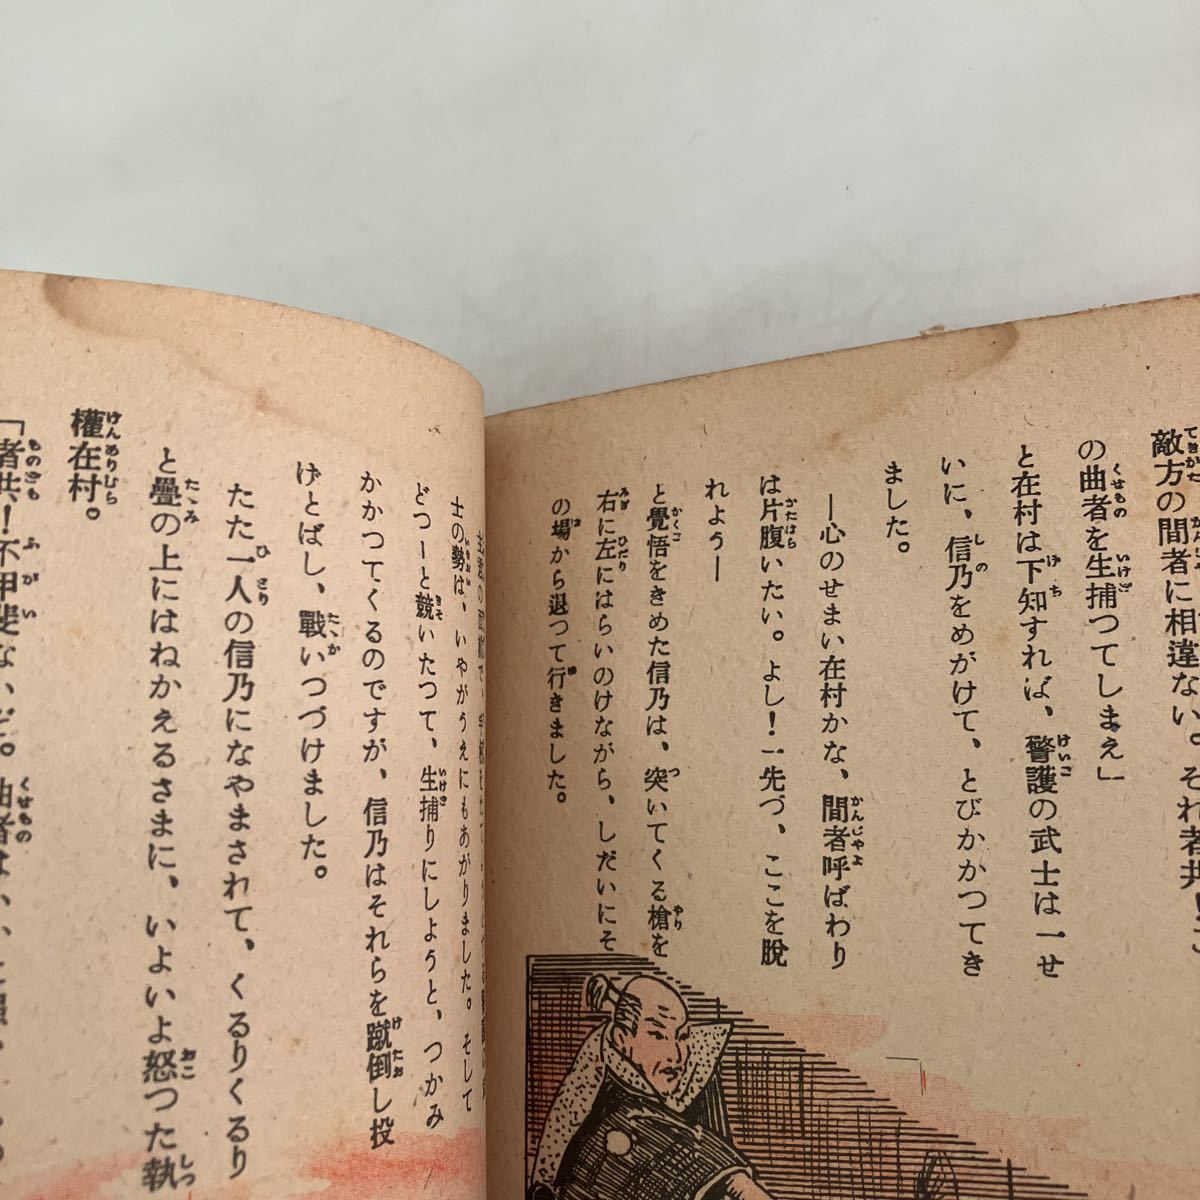 敵方の間者に相違ない。それ者共！こ
の曲者を生捕つてしまえ」
と在村は下知すれば、警護の武士は一せ
いに、信乃をめがけて、とびかかつてき
ました。
―心のせまい在村かな、間者呼ばわり
は片腹いたい。よし！一先づ、ここを脫
れよう―
と覺悟をきめた信乃は、突いてくる槍を
右に左にはらいのけながら、しだいにそ
の場から退つて行きました。
士の勢は、いやがうえにもあがりました。そして
どつーと競いたつて、生捕りにしようと、つかみ
かかつてくるのですが、信乃はそれらを蹴倒し投
げとばし、戰いつづけました。
たた一人の信乃になやまされて、くるりくるり
と疊の上にはねかえるさまに、いよいよ怒つた執
權在村。
「者共！不甲斐ないぞ。曲者は